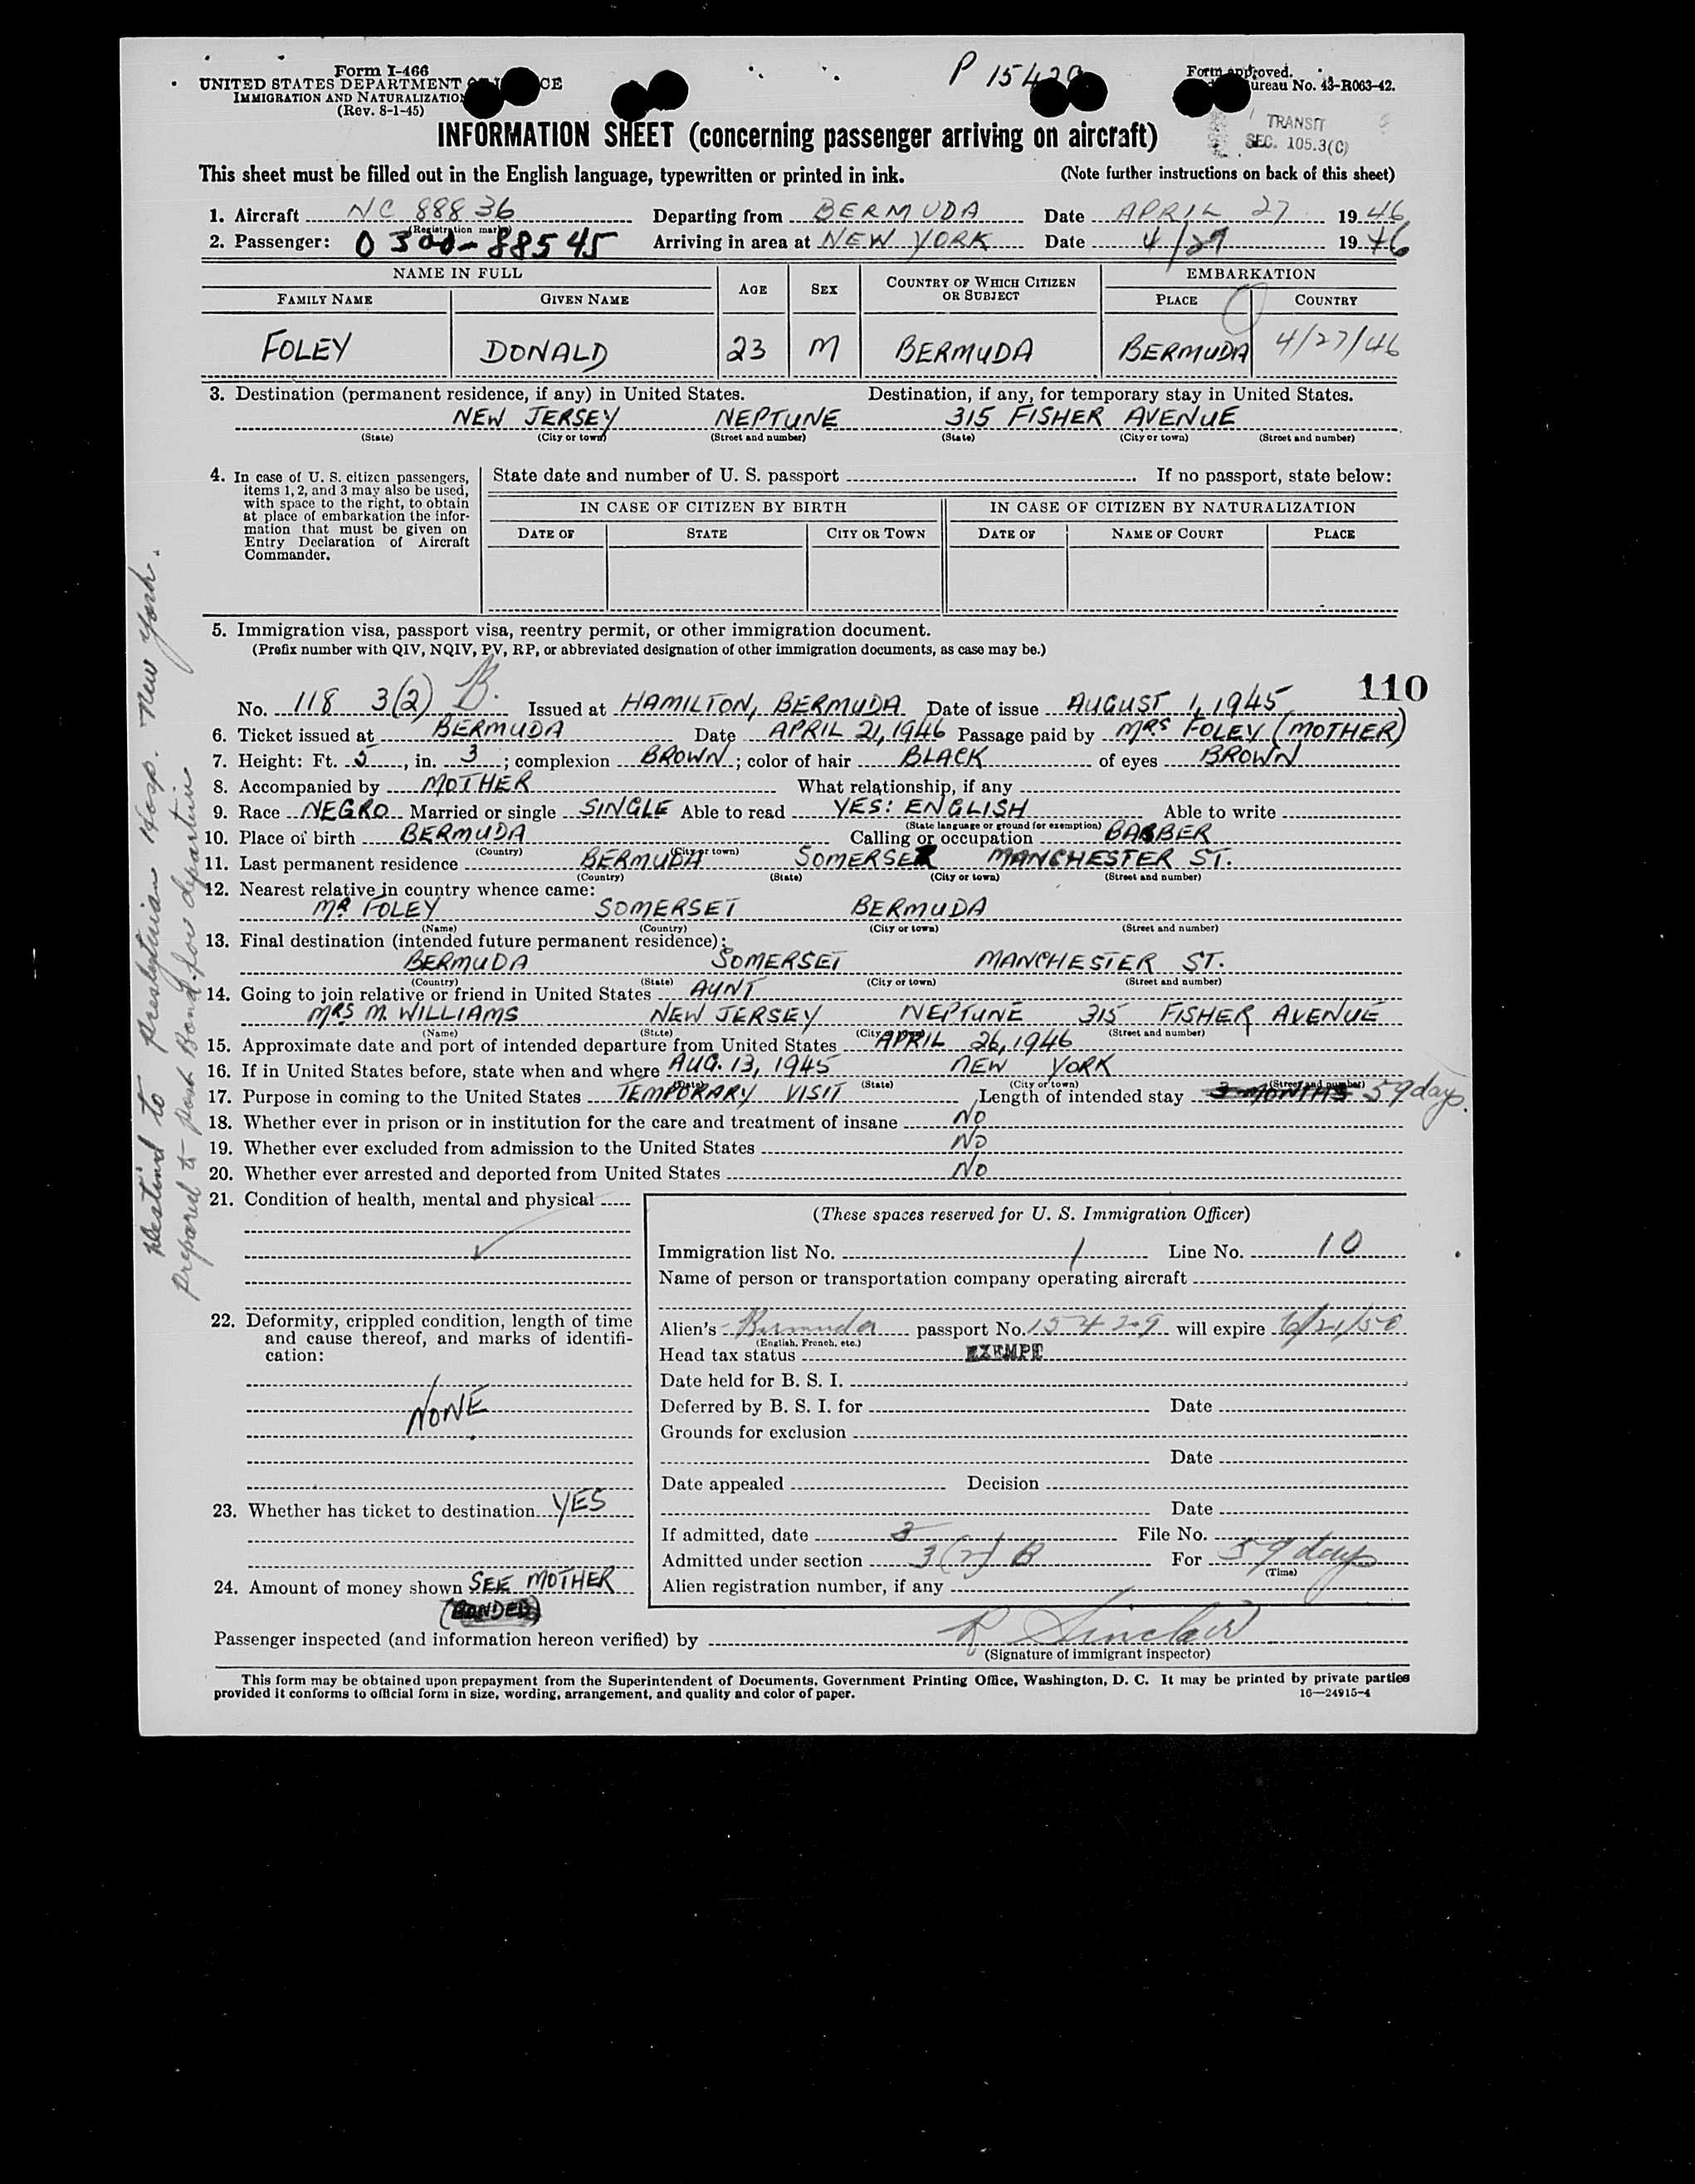 Form I-466
UNITED STATES DEPARTMENT
IMMIGRATION AND NATURALIZATION
(Rev. 8-1-45)
P 15429
Form approved.
Bureau No. 43-R063-42.
TRANSIT
SEC. 105.3(C)
INFORMATION SHEET (concerning passenger arriving on aircraft)
This sheet must be filled out in the English language, typewritten or printed in ink. (Note further instructions on back of this sheet)
1. Aircraft NC 88836 Departing from BERMUDA Date APRIL 27 1946
(Registration mark)
2. Passenger: 0300-88545 Arriving in area at NEW YORK Date 4/27 1946
NAME IN FULL AGE SEX COUNTRY OF WHICH CITIZEN OR SUBJECT EMBARKATION
FAMILY NAME GIVEN NAME PLACE COUNTRY
FOLEY DONALD 23 M BERMUDA BERMUDA 4/27/46
3. Destination (permanent residence, if any) in United States. Destination, if any, for temporary stay in United States.
NEW JERSEY NEPTUNE 315 FISHER AVENUE
(State) (City or town) (Street and number) (State) (City or town) (Street and number)
4. In case of U. S. citizen passengers,
items 1, 2, and 3 may also be used,
with space to the right, to obtain
at place of embarkation the infor-
mation that must be given on
Entry Declaration of Aircraft
Commander.
State date and number of U. S. passport . If no passport, state below:
IN CASE OF CITIZEN BY BIRTH IN CASE OF CITIZEN BY NATURALIZATION
DATE OF STATE CITY OR TOWN DATE OF NAME OF COURT PLACE
5. Immigration visa, passport visa, reentry permit, or other immigration document.
(Prefix number with QIV, NQIV, PV, RP, or abbreviated designation of other immigration documents, as case may be.)
110
No. 118 3(2) B. Issued at HAMILTON, BERMUDA Date of issue AUGUST 1, 1945
6. Ticket issued at BERMUDA Date APRIL 21, 1946 Passage paid by MRS FOLEY (MOTHER)
7. Height: Ft. 5, in. 3; complexion BROWN; color of hair BLACK of eyes BROWN
8. Accompanied by MOTHER What relationship, if any
9. Race NEGRO Married or single SINGLE Able to read YES: ENGLISH Able to write
(State language or ground for exemption)
10. Place of birth BERMUDA Calling or occupation BARBER
(Country) (City or town)
11. Last permanent residence BERMUDA SOMERSET MANCHESTER ST.
(Country) (State) (City or town) (Street and number)
12. Nearest relative in country whence came:
MR FOLEY SOMERSET BERMUDA
(Name) (Country) (City or town) (Street and number)
13. Final destination (intended future permanent residence):
BERMUDA SOMERSET MANCHESTER ST.
(Country) (State) (City or town) (Street and number)
14. Going to join relative or friend in United States AUNT
MRS M. WILLIAMS NEW JERSEY NEPTUNE 315 FISHER AVENUE
(Name) (State) (City or town) (Street and number)
15. Approximate date and port of intended departure from United States APRIL 26, 1946
16. If in United States before, state when and where AUG. 13, 1945 NEW YORK
(Date) (State) (City or town) (Street and number)
17. Purpose in coming to the United States TEMPORARY VISIT Length of intended stay 3 MONTHS 59 days.
18. Whether ever in prison or in institution for the care and treatment of insane NO
19. Whether ever excluded from admission to the United States NO
20. Whether ever arrested and deported from United States NO
21. Condition of health, mental and physical
22. Deformity, crippled condition, length of time
and cause thereof, and marks of identifi-
cation:
NONE
23. Whether has ticket to destination YES
24. Amount of money shown SEE MOTHER
(BONDED)
(These spaces reserved for U. S. Immigration Officer)
Immigration list No. 1 Line No. 10
Name of person or transportation company operating aircraft
Alien's Bermuda passport No. 15429 will expire 6/21/50
(English, French, etc.)
Head tax status EXEMPT
Date held for B. S. I.
Deferred by B. S. I. for Date
Grounds for exclusion
Date
Date appealed Decision
Date
If admitted, date File No.
Admitted under section 3(2) B For 59 days
(Time)
Alien registration number, if any
Passenger inspected (and information hereon verified) by R Sinclair
(Signature of immigrant inspector)
This form may be obtained upon prepayment from the Superintendent of Documents, Government Printing Office, Washington, D. C. It may be printed by private parties
provided it conforms to official form in size, wording, arrangement, and quality and color of paper. 16—24915-4
Destined to Presbyterian Hosp. New York.
Prepared to post Bond for departure